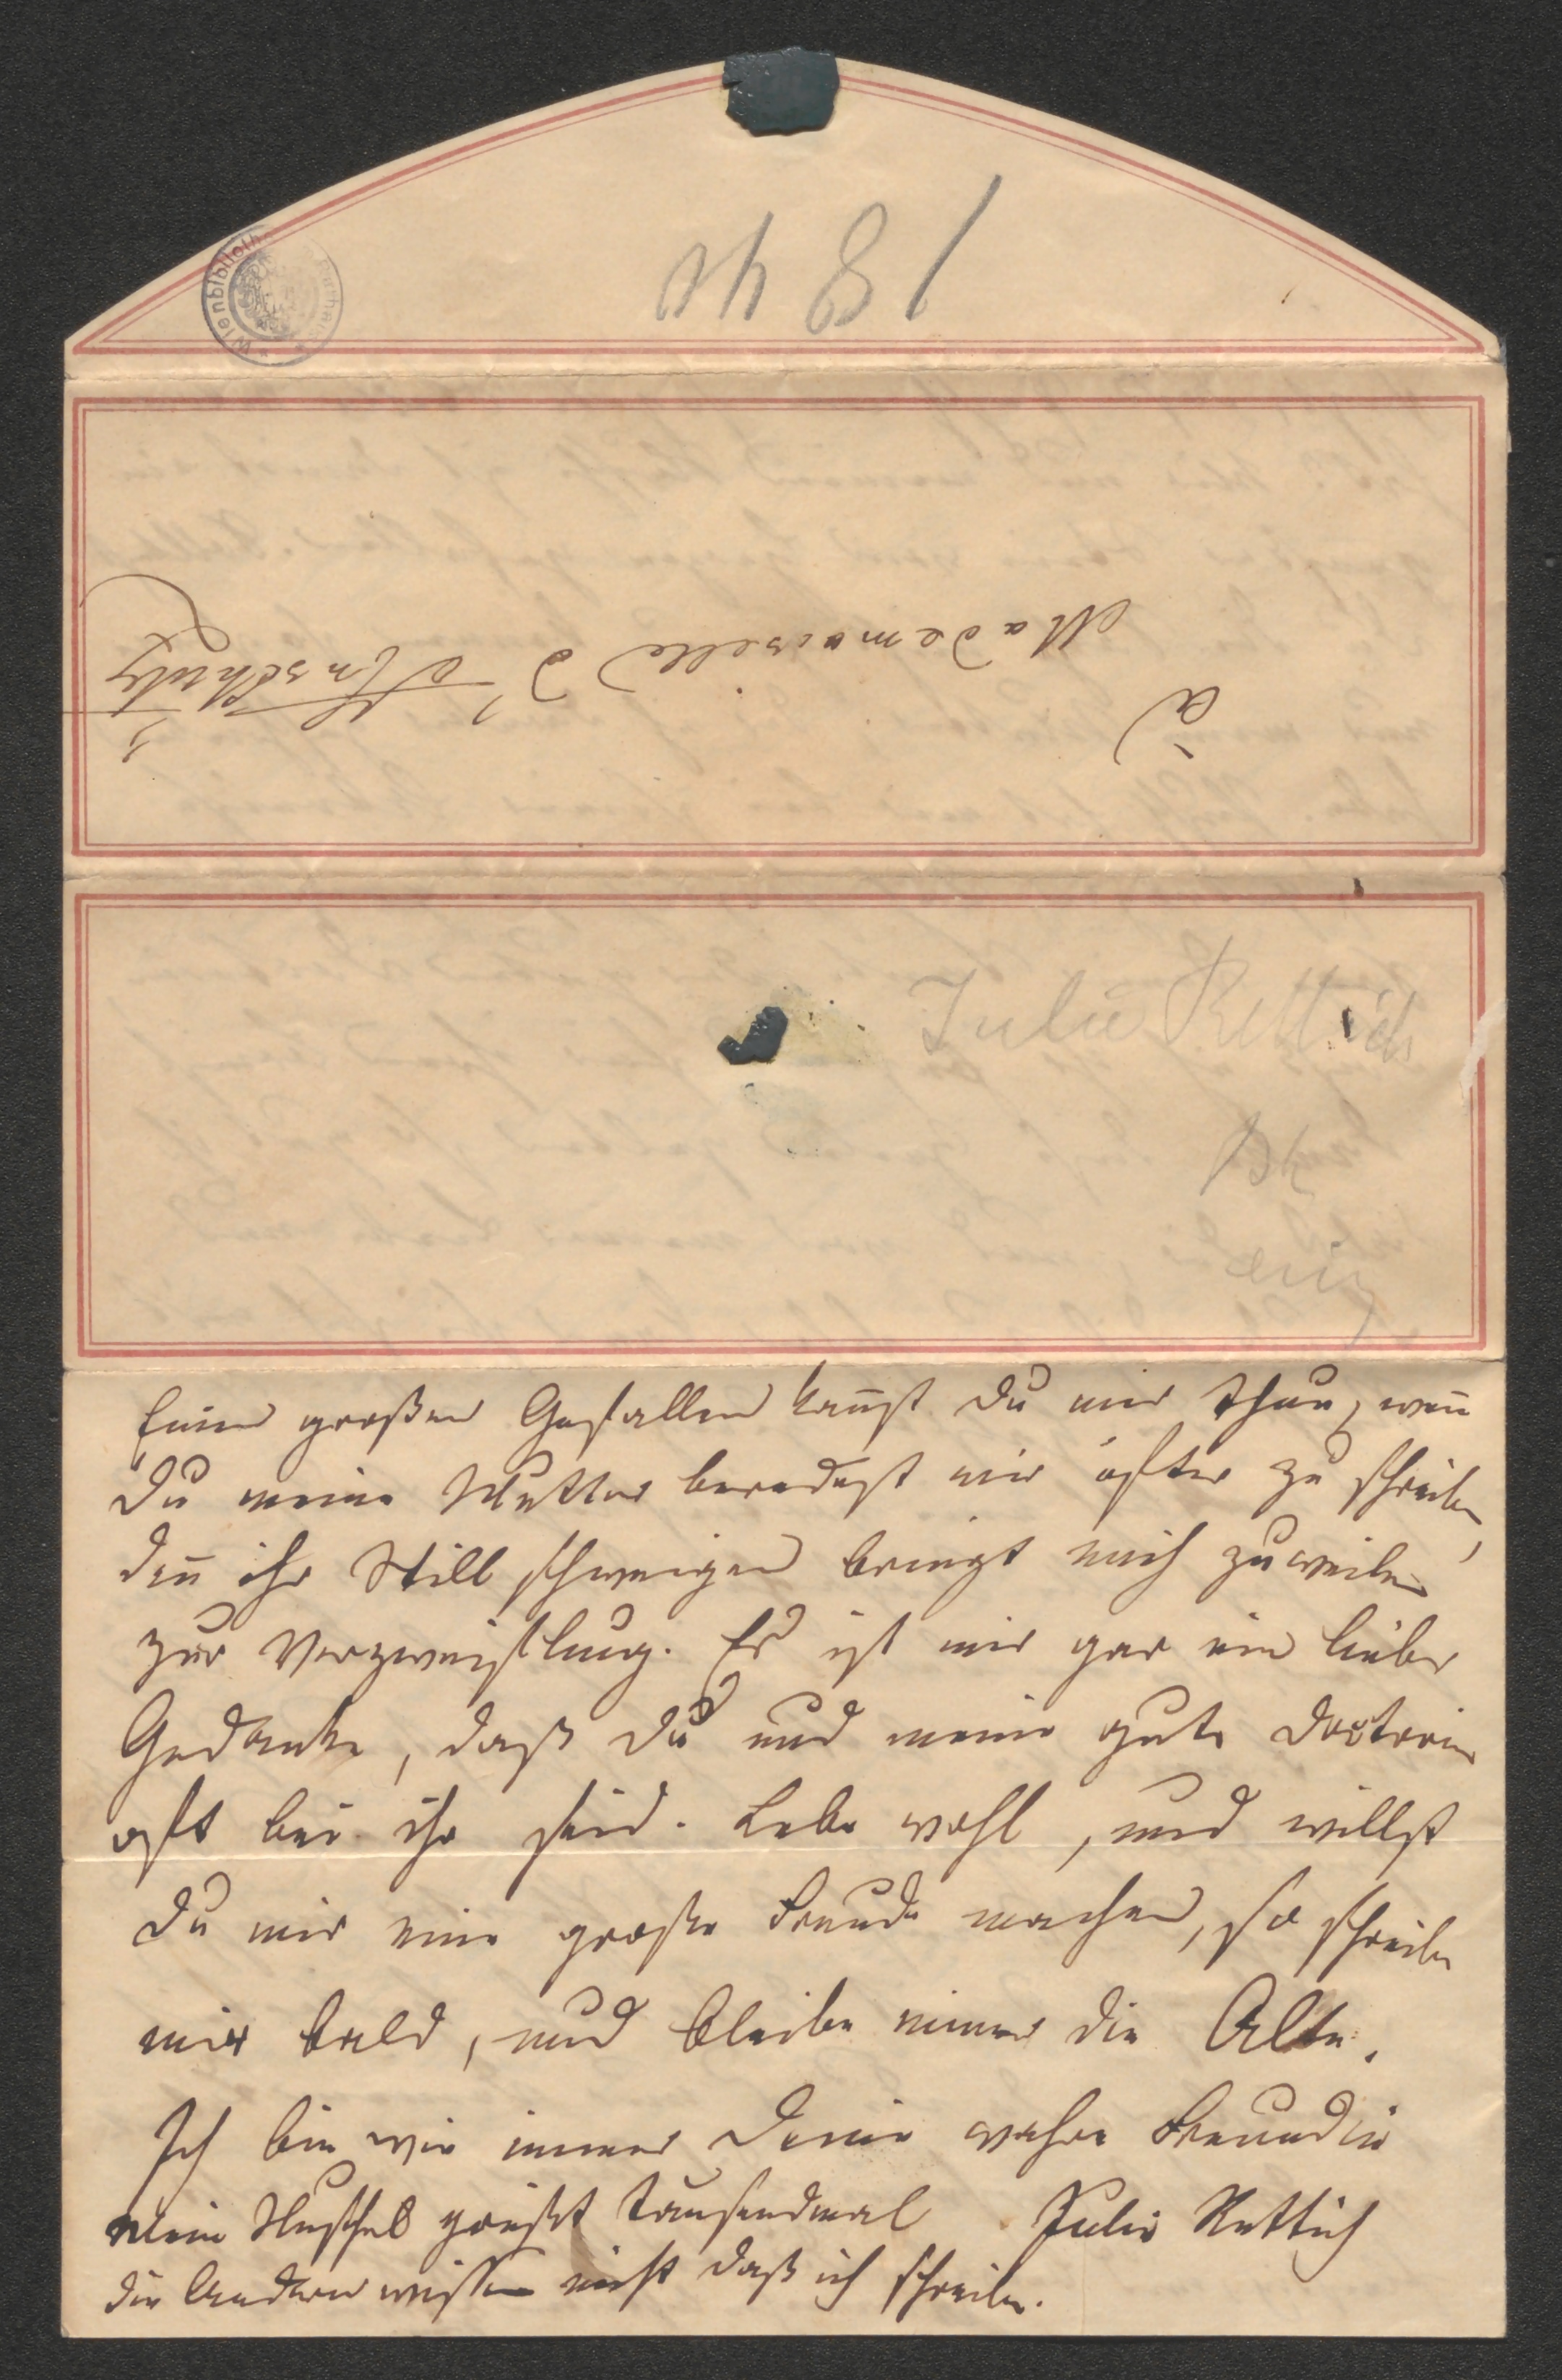 1841
à
Mademoiselle d'Anschütz
Julie Rettich
Einen großen Gefallen kan̄st du mir thun, wen̄
Du meine Mutter beredest mir öfter zu schreiben,
den̄ ihr Stillschweigen bringt mich zuweilen
zur Verzweiflung. Es ist mir gar ein lieber
Gedanke, daß Du und meine gute Doctorin
oft bei ihr seid. Lebe wohl, und willst
Du mir eine große Freude machen, so schreibe
mir bald, und bleibe immer die Alte.
Ich bin wie immer Deine wahre Freundin
Julie Rettich
Mein grüßt tausendmal
die Andern wissen nicht daß ich schreibe.